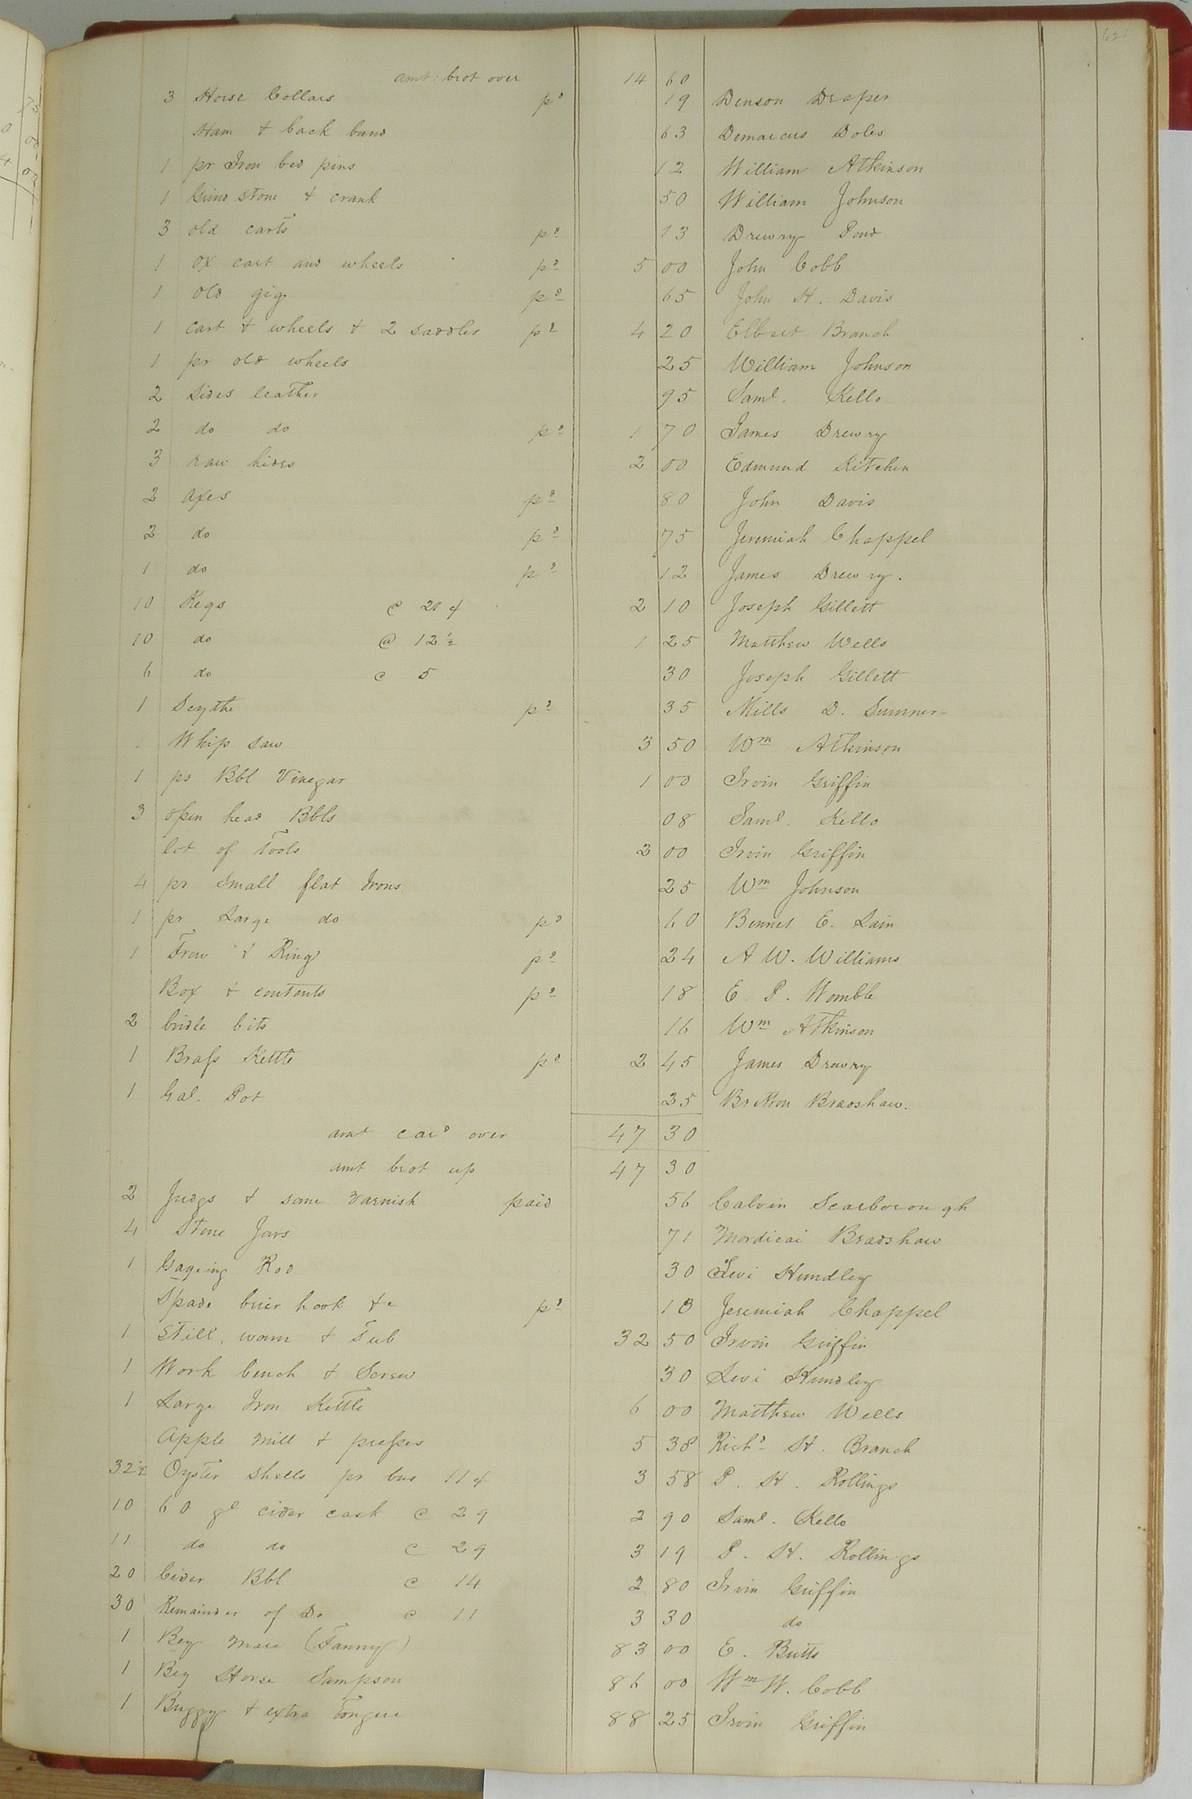 amt: brot over 14 60
3 Horse Collars pd 19 Denson Draper
Ham & back band 63 Demarcus Doles
1 pr Iron bed pins 12 William Atkinson
1 Grind stone & crank 50 William Johnson
3 old carts pd 13 Drewry Pond
1 ox cart and wheels pd 5 00 John Cobb
1 old gig pd 65 John H. Davis
1 cart & wheels & 2 saddles pd 4 20 Elbert Branch
1 pr old wheels 25 William Johnson
2 sides leather 95 Saml. Kello
2 do do pd 1 70 James Drewry
3 raw hides 2 00 Edmund Kitchen
2 axes pd 80 John Davis
2 do pd 75 Jeremiah Chappel
1 do pd 12 James Drewry.
10 Kegs @ 21 ¢ 2 10 Joseph Gillett
10 do @ 12½ 1 25 Matthew Wells
6 do @ 5 30 Joseph Gillett
1 Scythe pd 35 Mills D. Sumner
1 Whip saw 3 50 Wm Atkinson
1 pr Bbl Vinegar 1 00 Irvin Griffin
3 open head Bbls 08 Saml. Kello
lot of Tools 2 00 Irvin Griffin
4 pr small flat Irons 25 Wm Johnson
1 pr Large do pd 60 Bennet E. Lain
1 Frow & Ring pd 24 A W. Williams
Box & contents pd 18 E. P. Womble
2 bridle bits 16 Wm Atkinson
1 Brass Kettle pd 2 45 James Drewry
1 Gal. Pot 25 Britton Bradshaw.
amt card over 47 30
amt brot up 47 30
2 Juggs & some varnish paid 56 Calvin Scarborough
4 Stone Jars 71 Mordicai Bradshaw
1 Gageing Rod 30 Levi Hundley
Spade brier hook &c pd 18 Jeremiah Chappel
1 Still, worm & Tub 32 50 Irvin Griffin
1 Work bench & Screw 30 Levi Hundley
1 Large Iron Kettle 6 00 Matthew Wells
Apple mill & presses 5 38 Richd H. Branch
32½ Oyster shells pr bus 11 ¢ 3 58 P. H. Rollings
10 60 gl cider cask @ 29 2 90 Saml. Kello
11 do do @ 29 3 19 P. H. Rollings
20 Cider Bbl @ 14 2 80 Irvin Griffin
30 Remainder of Do @ 11 3 30 do
1 Bay mare (Fanny) 83 00 E. Butts
1 Bay Horse Sampson 86 00 Wm W. Cobb
1 Buggy & extra Tongue 88 25 Irvin Griffin